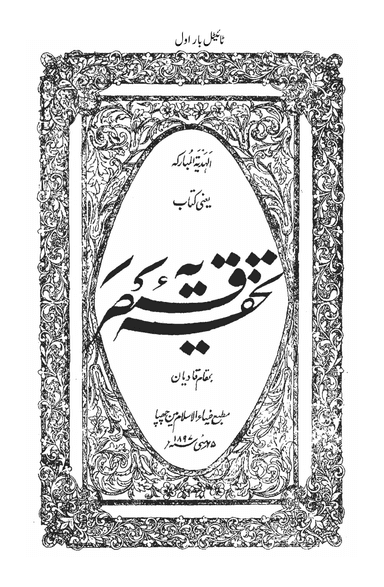 ٹائیٹل بار اول
الہَدیّۃ المُبارکہ
یعنی کتاب
تحفہ قیصریہ
بمقام قادیان
مطبع ضیاء الاسلام میں چھپا
۲۵ مئی ۱۸۹۷ء